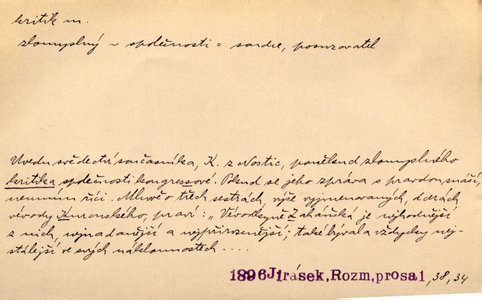 kritik m.
zlomyslný ~ společnosti = soudce, posuzovatel
Uvedu svědectví současníka, K. z Nostic, poněkud zlomyslného
kritika společnosti kongressové. Pokud se jeho zpráva s pravdou snáší,
nemohu říci. Mluvě o třech sestrách, výše vyjmenovaných, dcerách
vévody Kuronského, praví: „Vévodkyně Zaháňská je nejhodnější
z nich, nejnadanější a nejpřirozenější; také bývala vždycky nej-
stálejší ve svých náklonnostech....
1896 Jirásek, Rozm, prosa 1, 38, 34